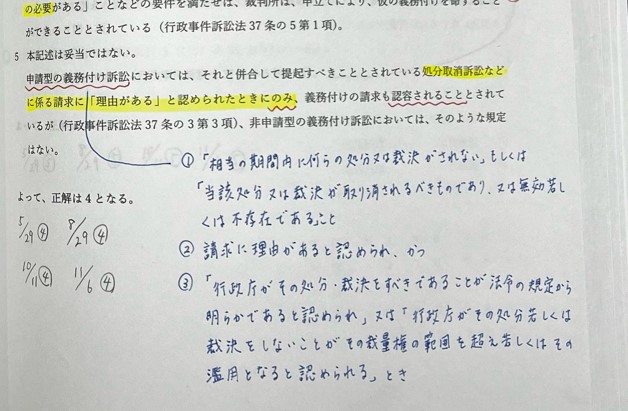 の必要がある」ことなどの要件を満たせば、裁判所は、申立てにより、仮の義務付けを命ずること
ができることとされている(行政事件訴訟法37条の5第1項)。
5 本記述は妥当ではない。
申請型の義務付け訴訟においては、それと併合して提起すべきこととされている処分取消訴訟など
に係る請求に「理由がある」と認められたときにのみ、義務付けの請求も認容されることとされて
いるが(行政事件訴訟法37条の3第3項)、非申請型の義務付け訴訟においては、そのような規定
はない。
①「相当の期間内に何らの処分又は裁決がされない」もしくは
「当該処分又は裁決が取り消されるべきものであり、又は無効若し
くは不存在であること
② 請求に理由があると認められ、かつ
③「行政庁がその処分・裁決をすべきであることが法令の規定から
明らかであると認められ」又は「行政庁がその処分若しくは
裁決をしないことがその裁量権の範囲を超え若しくはその
濫用となると認められる」とき
よって、正解は4となる。
5/29 ④ 8/29 ④
10/11 ④ 11/6 ④